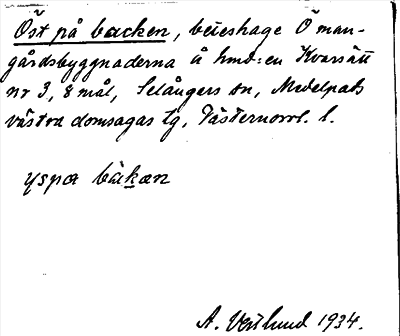 Öst på backen, beteshage Ö man-
gårdsbyggnaderna å hmd:en Kvarsätt
nr 3, 8 mål, Selångers sn, Medelpads
västra domsagas tg, Västernorrl. l.
yspa bakan
A. Vestlund 1934.